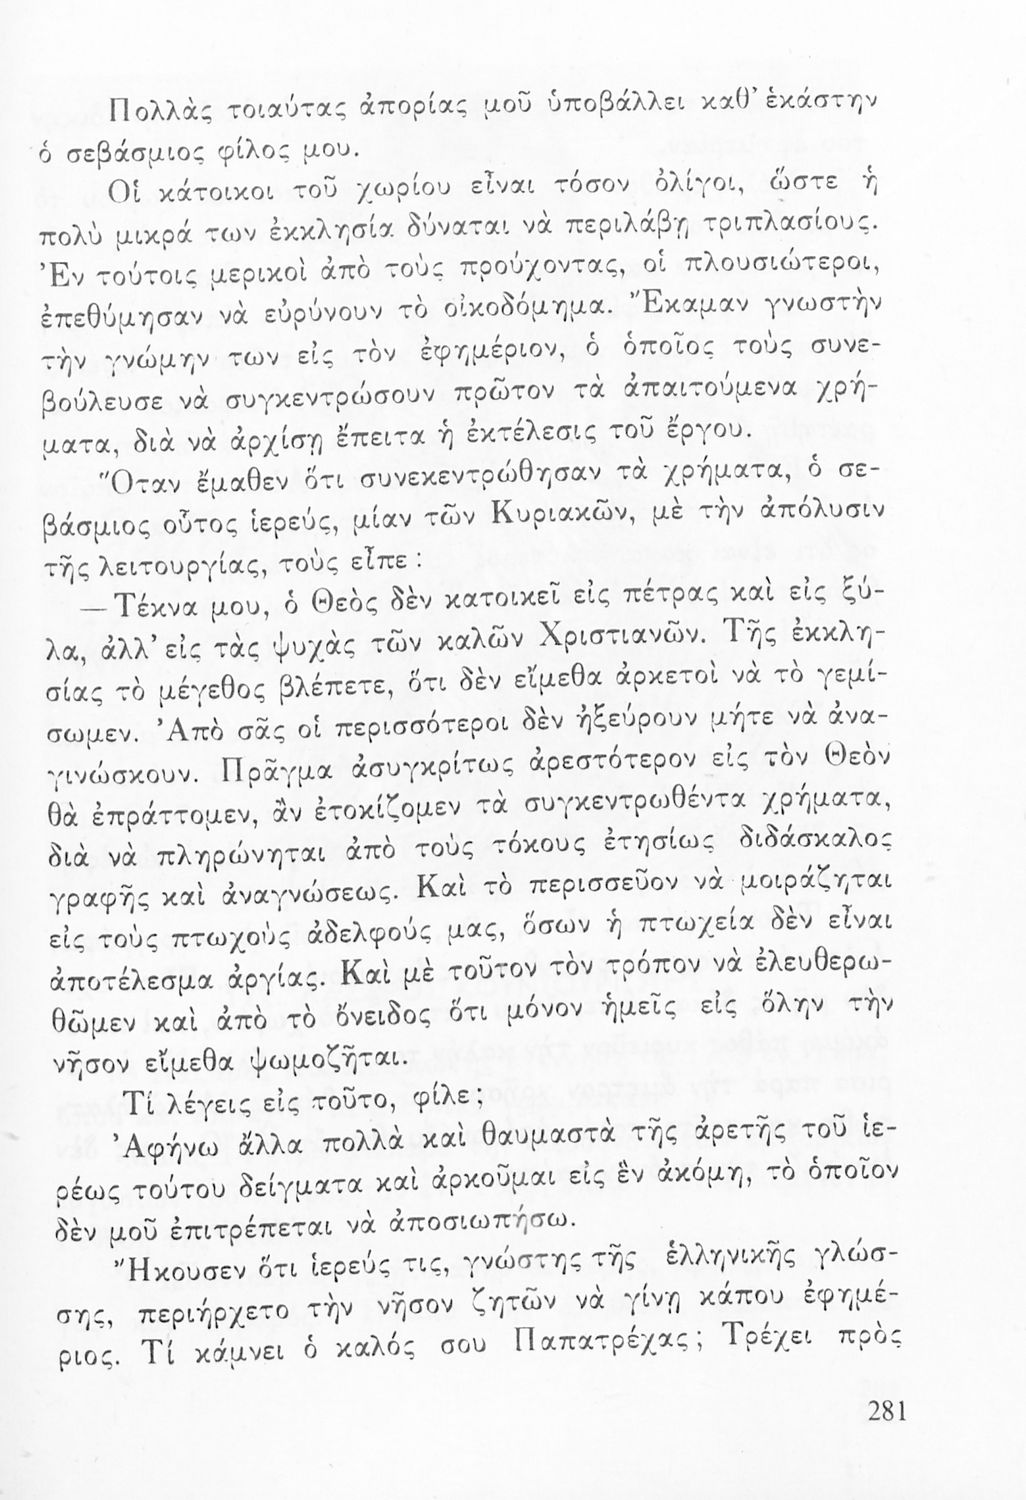 Πολλὰς τοιαύτας ἀπορίας μοῦ ὑποβάλλει καθ’ ἑκάστην
ὁ σεβάσμιος φίλος μου.
Οἱ κάτοικοι τοῦ χωρίου εἶναι τόσον ὀλίγοι, ὥστε ἡ
πολὺ μικρά των ἐκκλησία δύναται νὰ περιλάβῃ τριπλασίους.
Ἐν τούτοις μερικοὶ ἀπὸ τοὺς προύχοντας, οἱ πλουσιώτεροι,
ἐπεθύμησαν νὰ εὐρύνουν τὸ οἰκοδόμημα. Ἔκαμαν γνωστὴν
τὴν γνώμην των εἰς τὸν ἐφημέριον, ὁ ὁποῖος τοὺς συνε-
βούλευσε νὰ συγκεντρώσουν πρῶτον τὰ ἀπαιτούμενα χρή-
ματα, διὰ νὰ ἀρχίσῃ ἔπειτα ἡ ἐκτέλεσις τοῦ ἔργου.
Ὅταν ἔμαθεν ὅτι συνεκεντρώθησαν τὰ χρήματα, ὁ σε-
βάσμιος οὗτος ἱερεύς, μίαν τῶν Κυριακῶν, μὲ τὴν ἀπόλυσιν
τῆς λειτουργίας, τοὺς εἶπε :
— Τέκνα μου, ὁ Θεὸς δὲν κατοικεῖ εἰς πέτρας καὶ εἰς ξύ-
λα, ἀλλ’ εἰς τὰς ψυχὰς τῶν καλῶν Χριστιανῶν. Τῆς ἐκκλη-
σίας τὸ μέγεθος βλέπετε, ὅτι δὲν εἴμεθα ἀρκετοὶ νὰ τὸ γεμί-
σωμεν. Ἀπὸ σᾶς οἱ περισσότεροι δὲν ἠξεύρουν μήτε νὰ ἀνα-
γινώσκουν. Πρᾶγμα ἀσυγκρίτως ἀρεστότερον εἰς τὸν Θεὸν
θὰ ἐπράττομεν, ἂν ἐτοκίζομεν τὰ συγκεντρωθέντα χρήματα,
διὰ νὰ πληρώνηται ἀπὸ τοὺς τόκους ἐτησίως διδάσκαλος
γραφῆς καὶ ἀναγνώσεως. Καὶ τὸ περισσεῦον νὰ μοιράζηται
εἰς τοὺς πτωχοὺς ἀδελφούς μας, ὅσων ἡ πτωχεία δὲν εἶναι
ἀποτέλεσμα ἀργίας. Καὶ μὲ τοῦτον τὸν τρόπον νὰ ἐλευθερω-
θῶμεν καὶ ἀπὸ τὸ ὄνειδος ὅτι μόνον ἡμεῖς εἰς ὅλην τὴν
νῆσον εἴμεθα ψωμοζῆται.
Τί λέγεις εἰς τοῦτο, φίλε ;
Ἀφήνω ἄλλα πολλὰ καὶ θαυμαστὰ τῆς ἀρετῆς τοῦ ἱε-
ρέως τούτου δείγματα καὶ ἀρκοῦμαι εἰς ἓν ἀκόμη, τὸ ὁποῖον
δὲν μοῦ ἐπιτρέπεται νὰ ἀποσιωπήσω.
Ἤκουσεν ὅτι ἱερεύς τις, γνώστης τῆς ἑλληνικῆς γλώσ-
σης, περιήρχετο τὴν νῆσον ζητῶν νὰ γίνῃ κάπου ἐφημέ-
ριος. Τί κάμνει ὁ καλός σου Παπατρέχας ; Τρέχει πρὸς
281